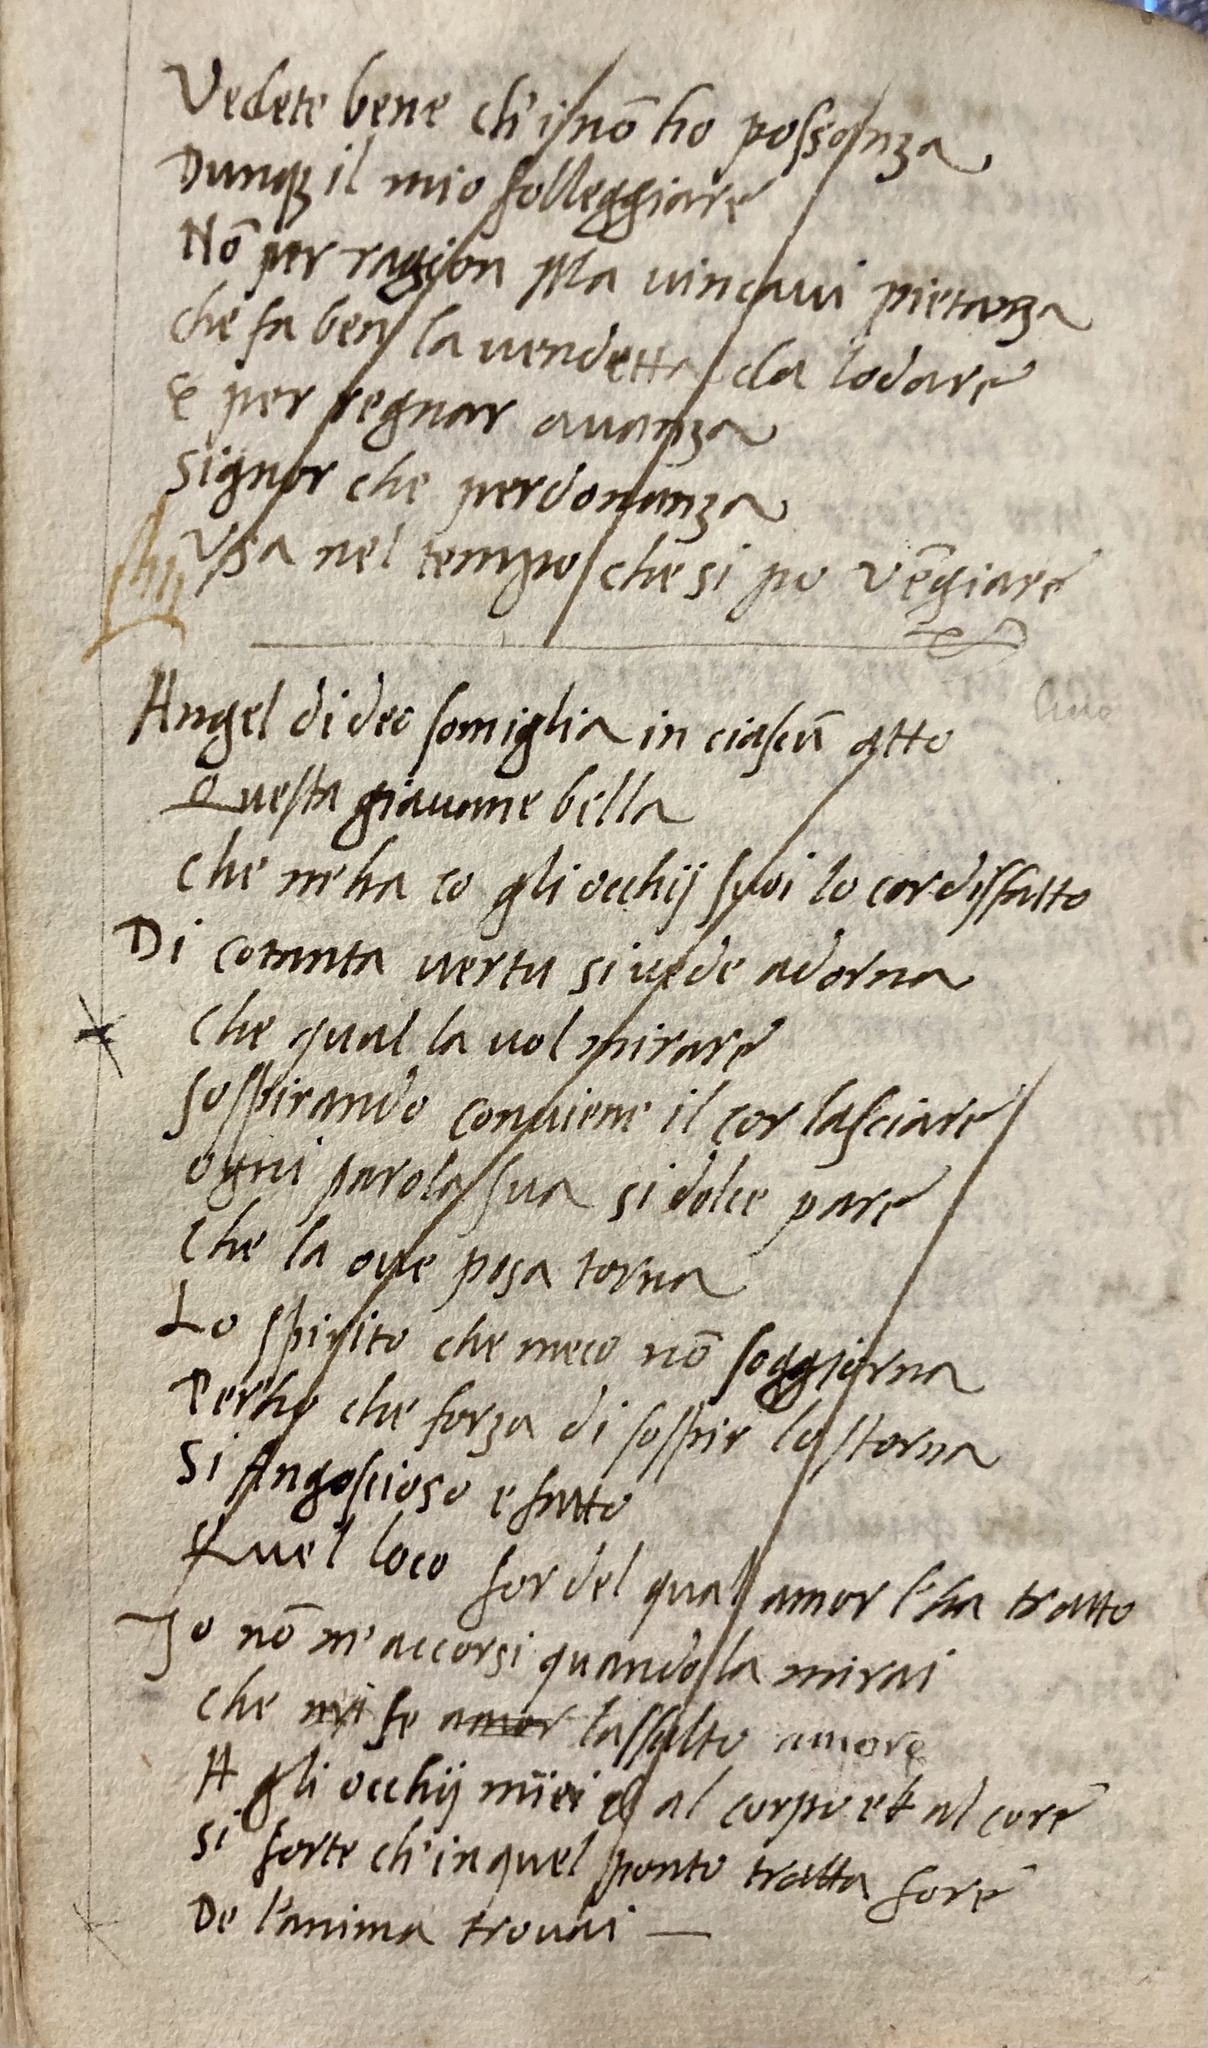 Vedete bene ch'i nõ ho possanza
Dunqꝫ il mio folleggiare
Nõ per ragion Ma vincaui pietanza
che fa ben la uendetta da lodare
e per regnar auanza
signor che perdonanza
Vsa nel tempo che si po vẽgiare
Angel di deo somiglia in ciascũ atto
Questa giauane bella
che m'ha co gli occhij suoi lo cor disfatto
Di cotanta uertu si uede adorna
che qual la uol mirare
sospirando conuiene il cor lasciare
ogni parola sua si dolce pare
che la oue posa torna
Lo spirito che meco nõ soggiorna
Perho che forza di sospir lo storna
Si Angoscioso e fatto
Quel loco for del qual amor l'ha tratto
Io nõ m'accorsi quando la mirai
che mi fe amor lassalto amore
A gli occhij miei et al corpo et al core
si forte ch'in quel ponto tratta fore
De l'anima trouai —